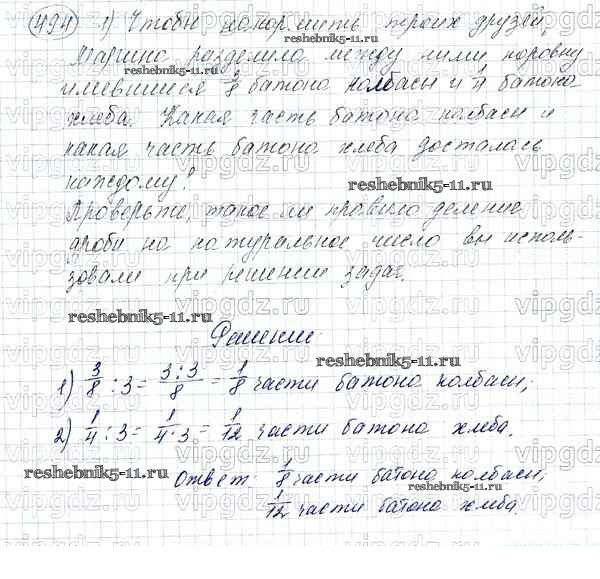 494 1) Чтобы накормить троих друзей,
Марина разделила между ними поровну
имевшиеся 3/8 батона колбасы и 1/4 батона
хлеба. Какая часть батона колбасы и
какая часть батона хлеба досталась
каждому?
Проверьте, такое ли правило деления
дроби на натуральное число вы исполь-
зовали при решении задач.
Решение
1) 3/8 : 3 = 3:3/8 = 1/8 части батона колбасы;
2) 1/4 : 3 = 1/4·3 = 1/12 части батона хлеба.
Ответ: 1/8 части батона колбасы,
1/12 части батона хлеба.
reshebnik5-11.ru
reshebnik5-11.ru
reshebnik5-11.ru
reshebnik5-11.ru
reshebnik5-11.ru
reshebnik5-11.ru
reshebnik5-11.ru
vipgdz.ru